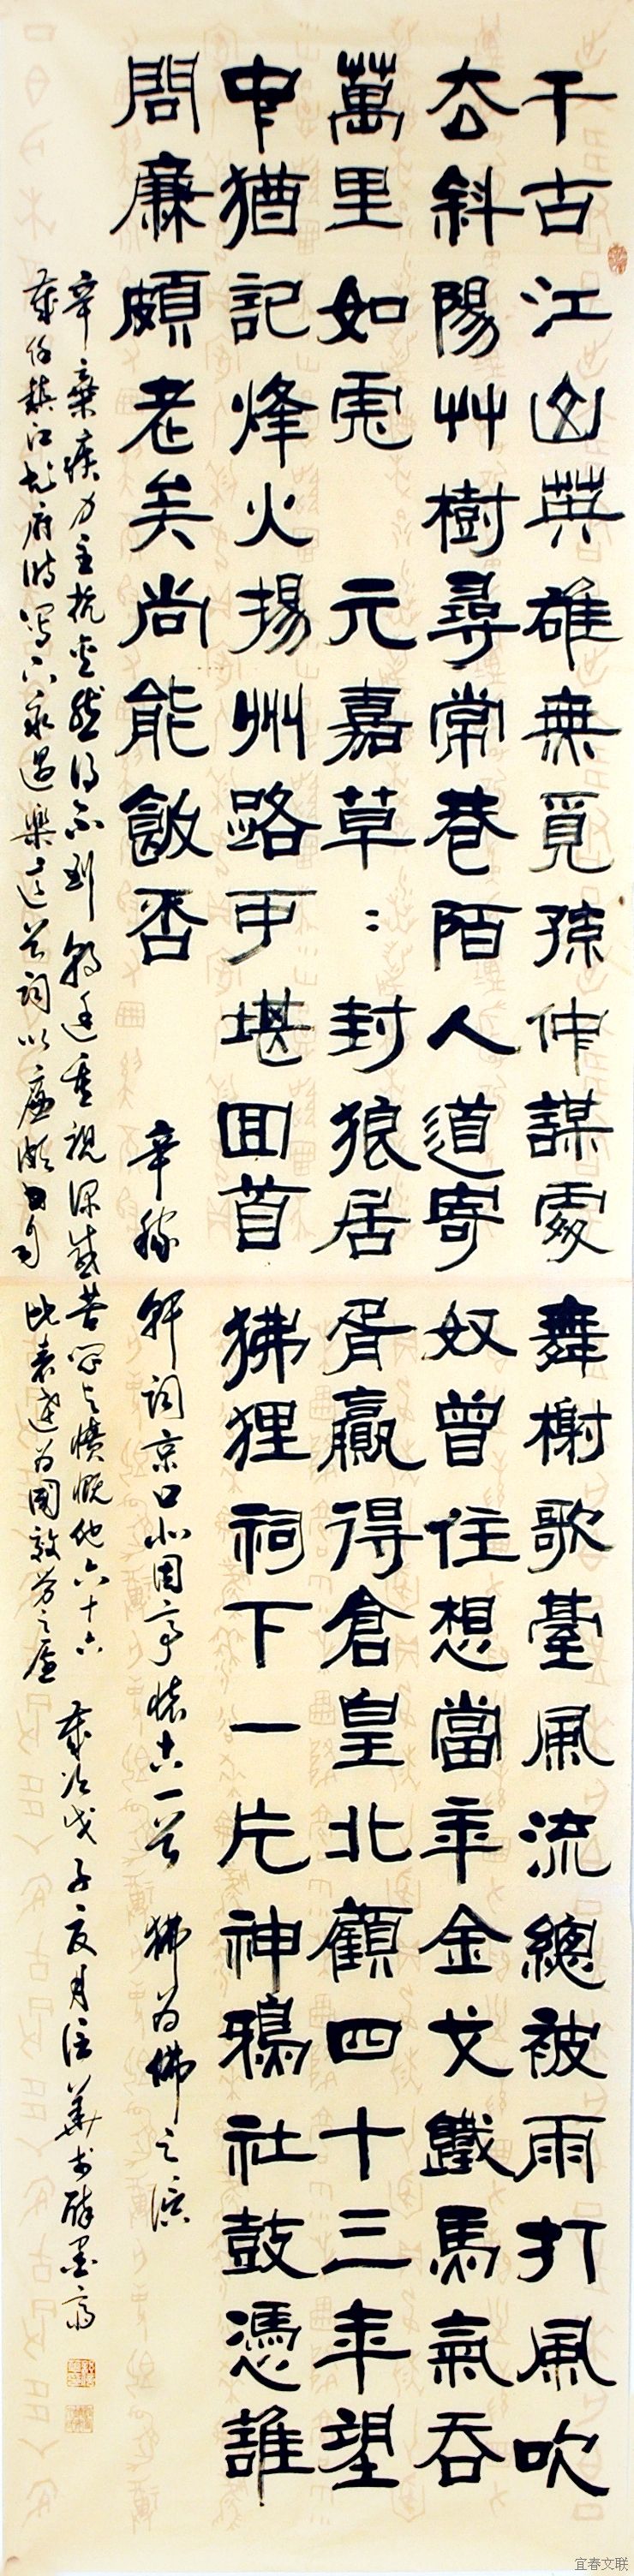 千古江山英雄無覓孫仲謀處舞榭歌臺風流總被雨打風吹
去斜陽艸樹尋常巷陌人道寄奴曾住想當年金戈鐵馬氣吞
萬里如虎 元嘉草〻封狼居胥贏得倉皇北顧四十三年望
中猶記烽火揚州路可堪回首狒狸祠下一片神鴉社鼓憑誰
問廉頗老矣尚能飯否 辛稼軒詞京口北固亭懷古一首 狒為佛之誤
辛棄疾力主抗金然得不到朝廷重視深感苦悶與憤慨他六十六
歲任鎮江知府時寫下永遇樂這首詞以廉頗自比表達為國效勞之
歲次戊子夏月
宜春文联